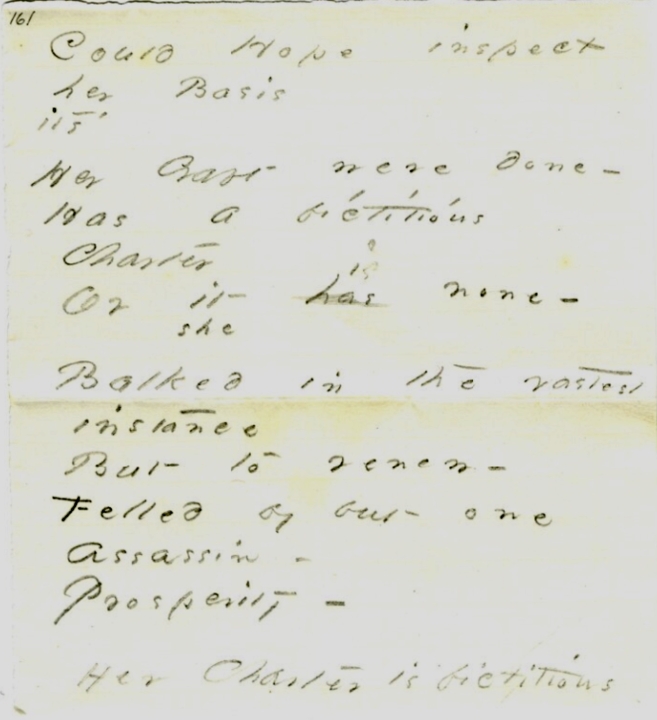 161
Could Hope inspect
her Basis
its
Her Craft were done –
Has a fictitious
Charter
is
Or it has none –
she
Balked in the vastest
instance
But to renew –
Felled by but one
Assassin –
Prosperity –
Her Charter is fictitious